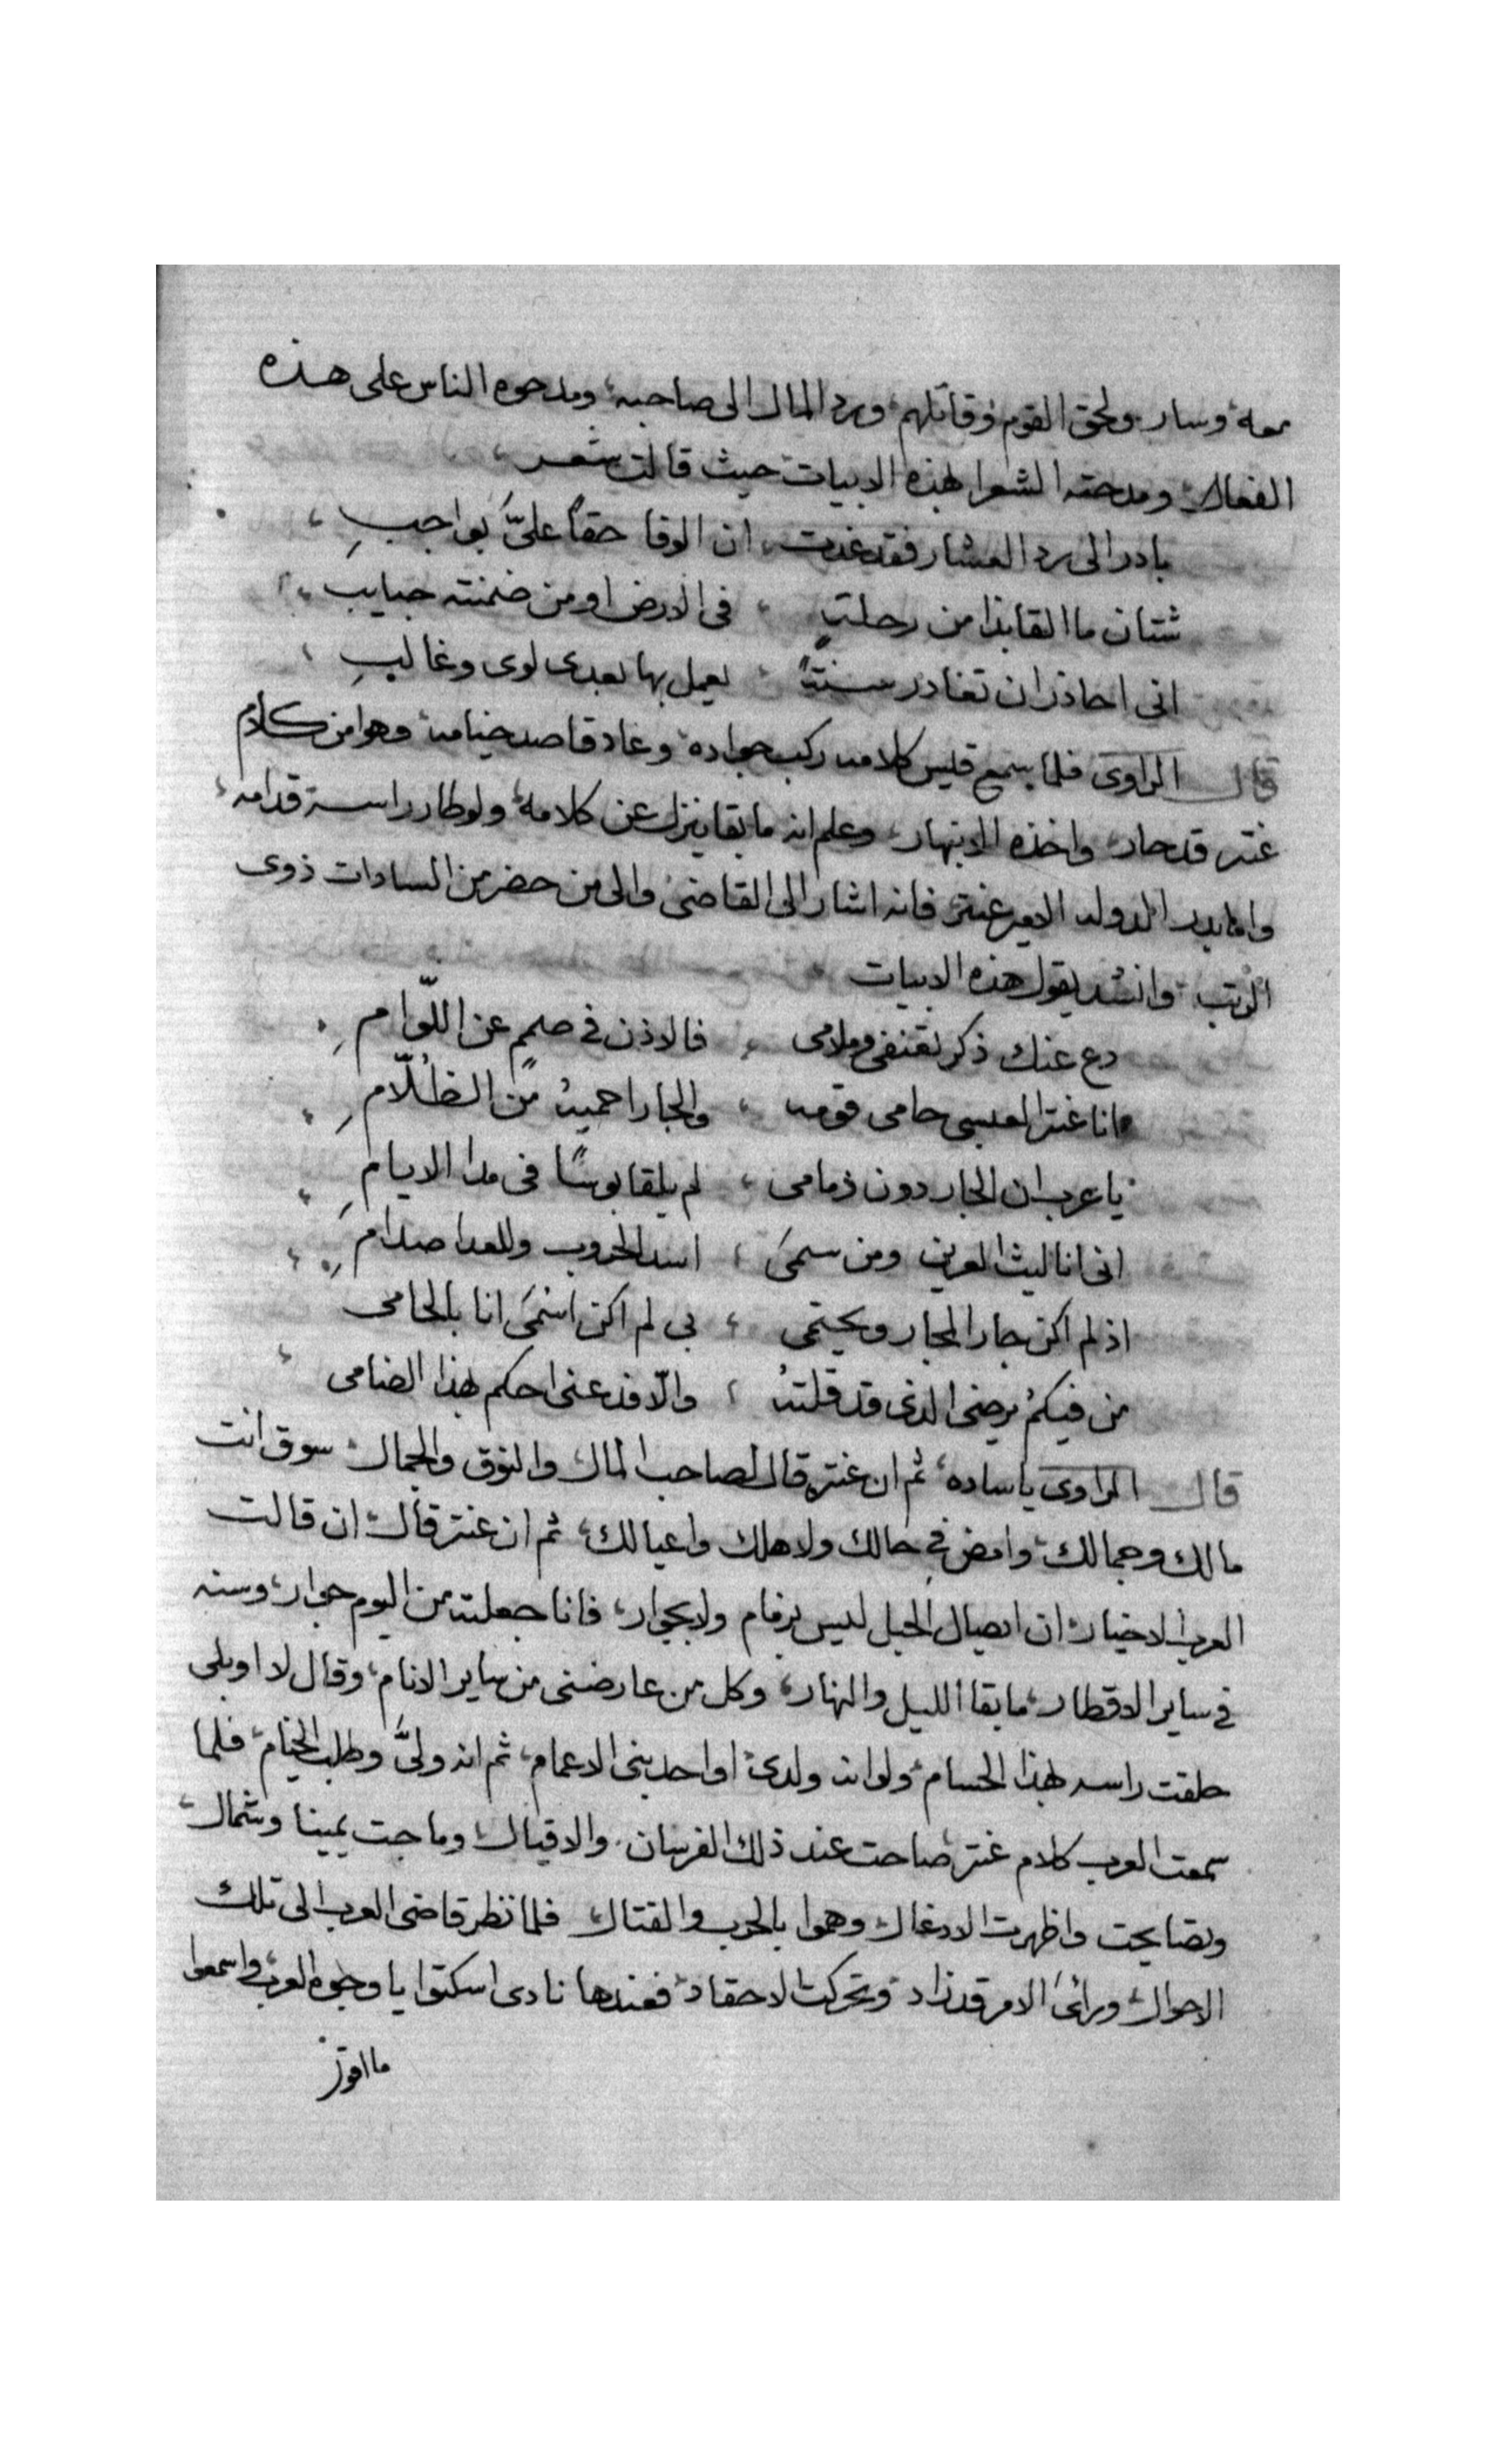 معه وسار ولحق القوم وقاتلهم ورد المال الى صاحبه ومدحوه الناس على هذه
الفعال ومدحته الشعرا بهذه الابيات حيث قالت شعر
بادر الى رد العشار فقد غدت ، ان الوفا حقًا علىَّ بواجبِ ،
شتان ما القابذا من رحلتٍ ، فى الارض او من ضمنته حبايب ،
انى احاذر ان تغادر سنتهً ، يعمل بها بعدى لوى وغالبِ ،
قال الراوى فلما سمع قيس كلامه ركب جواده وعاد قاصد خيامه وهوا من كلام
عنتر قد حار واخذه الانبهار وعلم انه ما بقا ينزل عن كلامه ولو طار راسه قدامه
واما بدر الدوله الامير عنتر فانه اشار الى القاضى والى من حضر من السادات ذوى
الرتب وانشد يقول هذه الابيات
دع عنك ذكر تعنفى وملامى ، فالاذن فى صممٍ عن اللّوامِ ،
فانا عنتر العبسى حامى قومه ، والجار احميهُ من الظُلّامِ ،
يا عرب ان الجار دون ذمامى ، لم يلقا بوسًا فى مدا الايامِ ،
انى انا ليث العرين ومن سمىَ ، اسد الحروب وللعدا صدامِ ،
اذ لم اكن جار المجار ويحتمى ، بى لم اكن اسمىَ انا بالحامى
من فيكمُ يرضى الدى قد قلتهُ ، والّا فدعنى احكم بهذا الضامى ،
قال الراوى يا ساده ثم ان عنتره قال لصاحب المال والنوق والجمال سوق انت
مالك وجمالك وامض فى حالك ولاهلك واعيالك ثم ان عنتر قال ان قالت
العرب الاخيار ان ايصال الحبل ليس بزمام ولا بجوار فانا جعلته من اليوم جوار وسنه
فى ساير الاقطار ما بقا الليل والنهار وكل من عارضنى من ساير الانام وقال لا او بلى
حلقت راسه بهذا الحسام ولو انه ولدى او احد بنى الاعمام ثم انه ولىَّ وطلب الخيام فلما
سمعت العرب كلام عنتر صاحت عند ذلك الفرسان والاقيال وماجت يمينا وشمال
وتصايحت واظهرت الادغال وهموا بالحرب والقتال فلما نظر قاضى العرب الى تلك
الاحوال وراىَ الامر قد زاد وتحركت الاحقاد فعندها نادى اسكتوا يا وجوه العرب واسمعوا
ما اقول